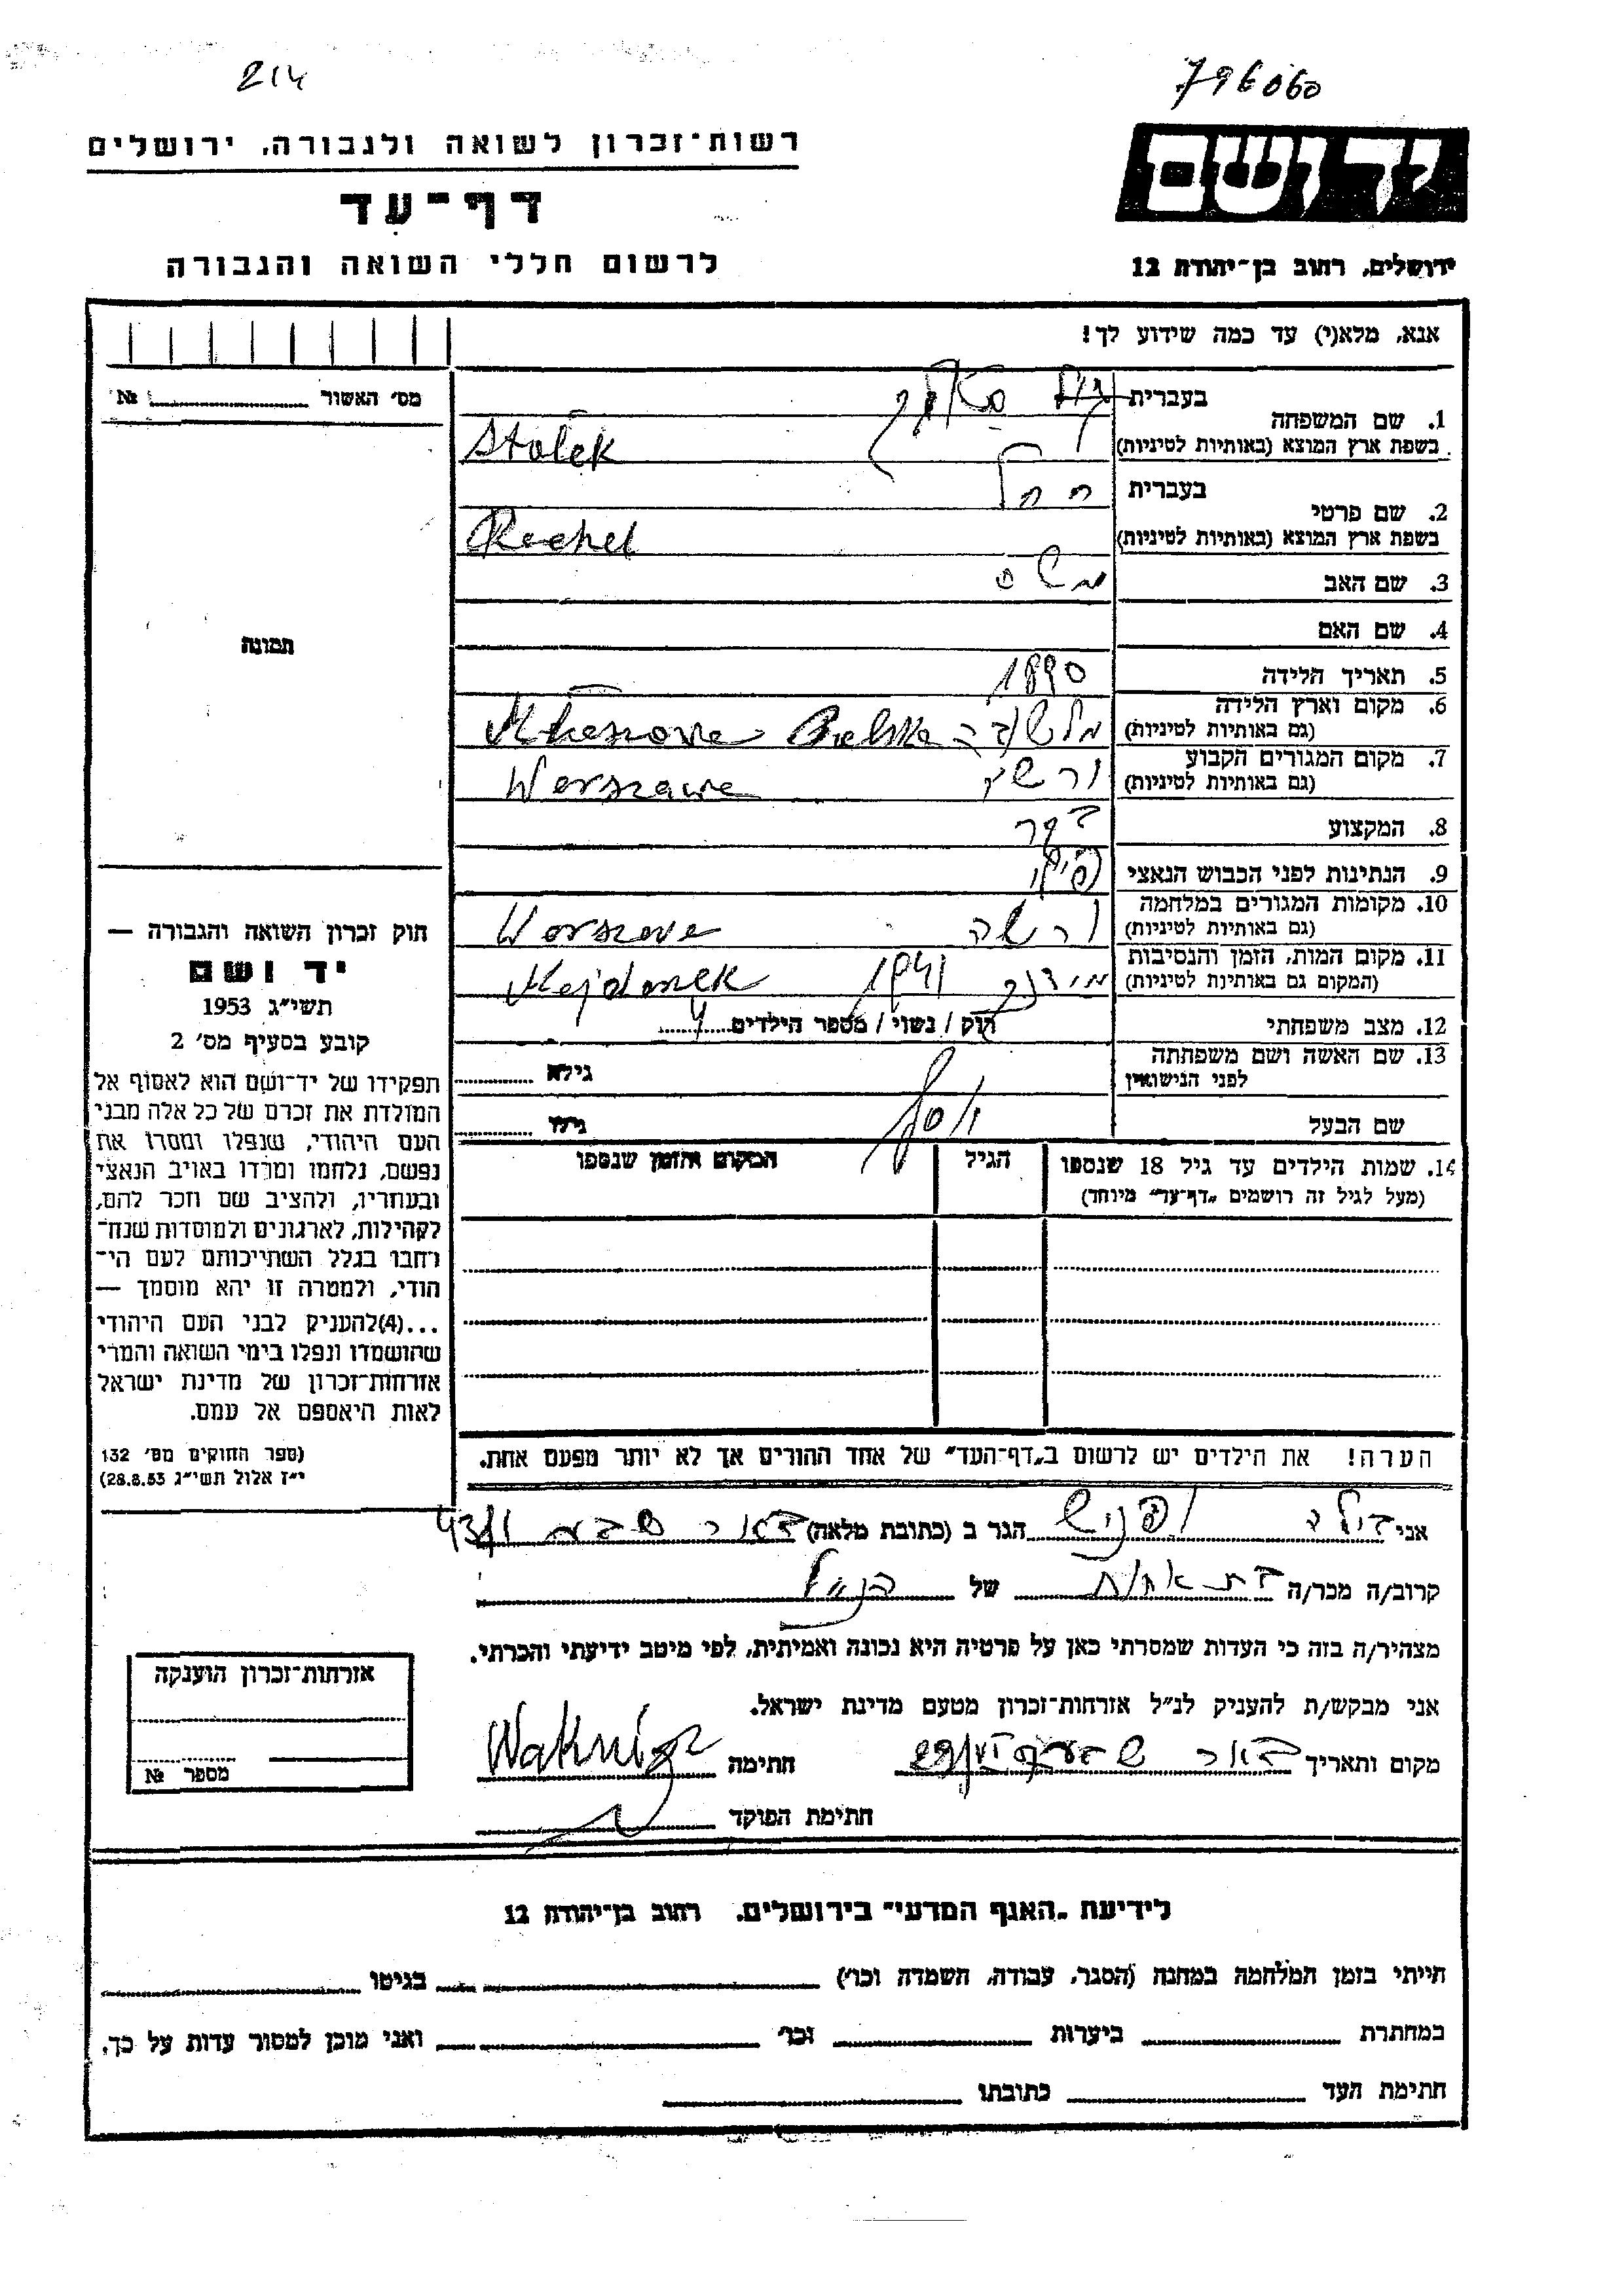 214
796060
רשות־זכרון לשואה ולגבורה, ירושלים
יד ושם
דף־עד
לרשום חללי השואה והגבורה
ירושלים, רחוב בן־יהודה 12
אנא, מלא(י) עד כמה שידוע לך!
מס' האשור № 
1. שם המשפחה בעברית
בשפת ארץ המוצא (באותיות לטיניות) Stolek
2. שם פרטי בעברית רחל
בשפת ארץ המוצא (באותיות לטיניות) Rachel
3. שם האב משה
4. שם האם
תמונה
5. תאריך הלידה 1890
6. מקום וארץ הלידה
(גם באותיות לטיניות)
7. מקום המגורים הקבוע
(גם באותיות לטיניות) Warszawa
8. המקצוע
9. הנתינות לפני הכבוש הנאצי
10. מקומות המגורים במלחמה
(גם באותיות לטיניות) ורשה Warszawa
11. מקום המות, הזמן והנסיבות
(המקום גם באותיות לטיניות) מידנק 1941 Majdanek
12. מצב משפחתי רוק / נשוי / מספר הילדים 4
13. שם האשה ושם משפחתה
לפני הנישואין גילא
שם הבעל יוסף גילו
14. שמות הילדים עד גיל 18 שנספו
(מעל לגיל זה רושמים "דף־עד" מיוחד)
הגיל
המקום והזמן שנספו
חוק זכרון השואה והגבורה —
יד ושם
תשי"ג 1953
קובע בסעיף מס' 2
תפקידו של יד־ושם הוא לאסוף אל
המולדת את זכרם של כל אלה מבני
העם היהודי, שנפלו ומסרו את
נפשם, נלחמו ומרדו באויב הנאצי
ובעוזריו, ולהציב שם וזכר להם,
לקהילות, לארגונים ולמוסדות שנח־
רחבו בגלל השתייכותם לעם הי־
הודי, ולמטרה זו יהא מוסמך —
...(4)להעניק לבני העם היהודי
שהושמדו ונפלו בימי השואה והמרי
אזרחות־זכרון של מדינת ישראל
לאות היאספם אל עמם.
(ספר החוקים מס' 132
י"ז אלול תשי"ג 28.8.53)
הערה! את הילדים יש לרשום ב"דף־העד" של אחד ההורים אך לא יותר מפעם אחת.
אני הגר ב (כתובת מלאה) באר שבע
קרוב/ה מכר/ה בת אחות של הנ"ל
מצהיר/ה בזה כי העדות שמסרתי כאן על פרטיה היא נכונה ואמיתית, לפי מיטב ידיעתי והכרתי.
אני מבקש/ת להעניק לנ"ל אזרחות־זכרון מטעם מדינת ישראל.
מקום ותאריך באר שבע חתימה
חתימת הפוקד
אזרחות־זכרון הוענקה
מספר №
לידיעת "האגף המדעי" בירושלים, רחוב בן־יהודה 12
הייתי בזמן המלחמה במחנה (הסגר, עבודה, השמדה וכו') בגיטו
במחתרת ביערות וכו' ואני מוכן למסור עדות על כך.
חתימת העד כתובתו